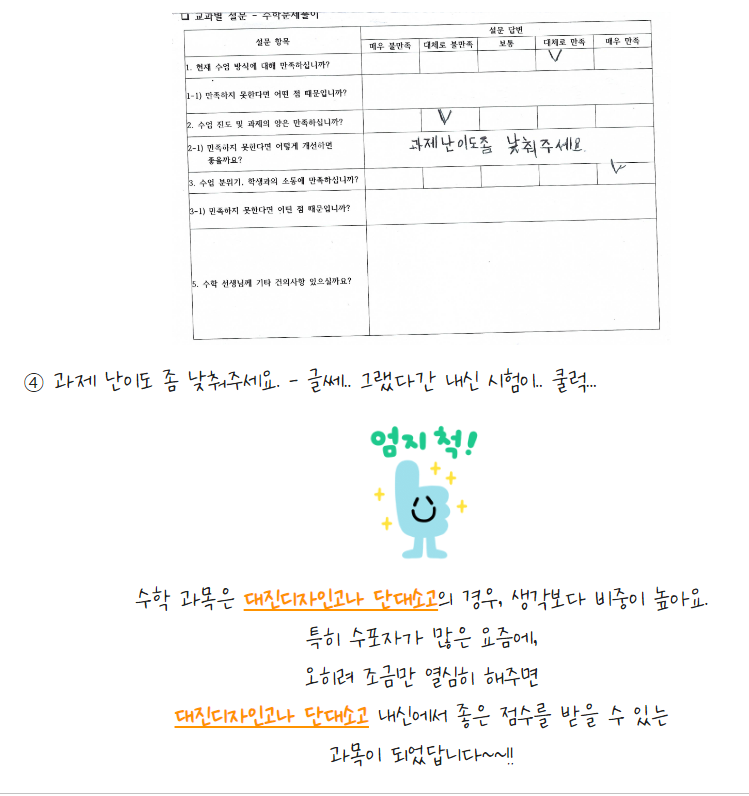 ❏ 교과별 설문 - 수학문제풀이
설문 항목
설문 답변
매우 불만족 대체로 불만족 보통 대체로 만족 매우 만족
1. 현재 수업 방식에 대해 만족하십니까?
1-1) 만족하지 못한다면 어떤 점 때문입니까?
2. 수업 진도 및 과제의 양은 만족하십니까?
2-1) 만족하지 못한다면 어떻게 개선하면
좋을까요?
과제난이도좀 낮춰주세요
3. 수업 분위기, 학생과의 소통에 만족하십니까?
3-1) 만족하지 못한다면 어떤 점 때문입니까?
5. 수학 선생님께 기타 건의사항 있으실까요?
④ 과제 난이도 좀 낮춰주세요. - 글쎄.. 그랬다간 내신 시험이.. 쿨럭...
엄지척!
수학 과목은 대진디자인고나 단대소고의 경우, 생각보다 비중이 높아요.
특히 수포자가 많은 요즘에,
오히려 조금만 열심히 해주면
대진디자인고나 단대소고 내신에서 좋은 점수를 받을 수 있는
과목이 되었답니다~~!!